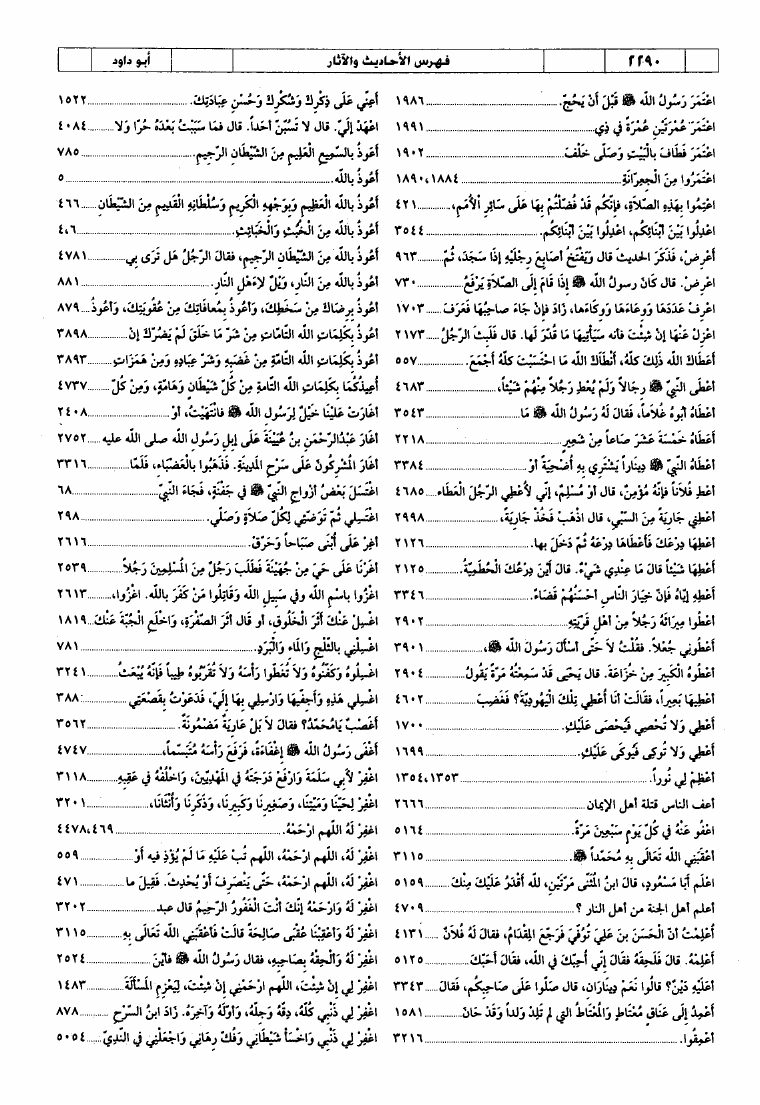 ٢٢٩٠ فهرس الأحاديث والآثار أبو داود
اعْتَمَرَ رَسُولُ اللَّه ﷺ قَبْلَ أَنْ يَحُجَّ. ١٩٨٦
اعْتَمَرَ عُمْرَتَيْنِ عُمْرَةً في ذِي ١٩٩١
اعْتَمَرَ فَطَافَ بالْبَيْتِ وَصَلَّى خَلْفَ ١٩٠٢
اعْتَمَرُوا مِنَ الْجِعِرانَةِ ١٨٨٤، ١٨٩٠
اعْتِمُوا بِهَذِهِ الصَّلاَةِ، فإنَّكُم قَدْ فُضِّلْتُمْ بِهَا عَلَى سَائِرِ الأُمَمِ، ٤٢١
اعْدِلُوا بَيْنَ أبْنَائِكُم، اعْدِلُوا بَيْنَ أبْنَائِكُم. ٣٥٤٤
أَعْرِضْ، فَذَكَرَ الحديثَ قال وَيَفْتَخُ أصَابِعَ رِجْلَيْهِ إذَا سَجَدَ، ثُمَّ ٩٦٣
اعرِضْ. قال كَانَ رسولُ الله ﷺ إذَا قَامَ إلَى الصَّلاَةِ يَرْفَعُ ٧٣٠
اعْرِف عَدَدَهَا وَوِعَاءَهَا وَوِكَاءَها، زَادَ فإنْ جَاءَ صاحِبُهَا فَعَرَفَ ١٧٠٣
اعْزِلْ عَنْهَا إنْ شِئْتَ فأنه سَيَأْتِيهَا مَا قُدِّرَ لَها. قال فَلَبِثَ الرَّجُلُ ٢١٧٣
أَعْطَاكَ الله ذَلِكَ كلَّهُ، أنْطَاكَ الله مَا احْتَسَبْتَ كلَّهُ أجْمَعَ. ٥٥٧
أعْطَى النَّبيُّ ﷺ رِجالاً وَلَمْ يُعْطِ رَجُلاً مِنْهُمْ شَيْئاً، ٤٦٨٣
أعْطَاهُ أَبُوهُ غُلاَماً، فقَالَ لَهُ رَسُولُ الله ﷺ مَا ٣٥٤٣
أعَطَاهُ خَمْسَةَ عَشَرَ صَاعاً مِنْ شَعِيرٍ ٢٢١٨
أعْطَاهُ النَّبيُّ ﷺ دِينَاراً يَشْتَرِي بِهِ أُضْحِيَةً أَوْ ٣٣٨٤
أعْطِ فُلاَناً فإنَّهُ مُؤْمِنٌ، قال أوْ مُسْلِمٌ، إنِّي لأُعْطِي الرَّجُلَ العَطَاء ٤٦٨٥
أعْطِنِي جَارِيَةً مِنَ السَّبْيِ، قال اذْهَبْ فَخُذْ جَارِيَةً، ٢٩٩٨
أعْطِهَا دِرْعَكَ فَأعْطَاهَا دِرْعَهُ ثُمَّ دَخَلَ بها. ٢١٢٦
أَعْطِهَا شَيْئاً قالَ مَا عِنْدِي شَيْءٌ. قالَ أَيْنَ دِرْعُكَ الْحُطَمِيَّةُ. ٢١٢٥
أعْطِهِ إيَّاهُ فإنَّ خِيَارَ النَّاسِ أحْسَنُهُمْ قَضَاءً. ٣٣٤٦
أعْطُوا مِيرَاثَهُ رَجُلاً مِنْ أهْلِ قَرْيَتِهِ ٢٩٠٢
أَعْطُونِي جُعْلاً. فقُلْتُ لاَ حَتَّى أسْألَ رَسُولَ الله ﷺ، ٣٩٠١
أعْطُوهُ الْكَبِيرَ مِنْ خُزَاعَةَ. قال يَحْيَى قَدْ سَمِعْتُهُ مَرَّةً يَقُولُ ٢٩٠٤
أعْطِيهَا بَعِيراً، فقَالَتْ أنَا أُعْطِي تِلْكَ الْيَهُودِيَّةَ؟ فَغَضِبَ ٤٦٠٢
أعْطِي وَلاَ تُحْصِي فَيُحْصَى عَلَيْكِ. ١٧٠٠
أعْطِي وَلاَ تُوكِى فَيُوكَى عَلَيْكِ. ١٦٩٩
أعْظِمْ لِي نُوراً. ١٣٥٣، ١٣٥٤
أعف الناس قتلة أهل الإيمان ٢٦٦٦
اعْفُو عَنْهُ في كُلِّ يَوْمٍ سَبْعِينَ مَرَّةً. ٥١٦٤
أعْقَبَنِي الله تَعَالَى بِهِ مُحَمَّداً ﷺ. ٣١١٥
اعْلَم أبَا مَسْعُودٍ، قال ابنُ المُثَنَّى مَرَّتَيْنِ، لله أقْدَرُ عَلَيْكَ مِنْكَ ٥١٥٩
أعلم أهل الجنة من أهل النار ؟ ٤٧٠٩
أعَلِمْتَ أنَّ الْحَسَنَ بنَ عَلِيٍّ تُوُفِّيَ فَرَجَّعَ المِقْدَامُ، فقالَ لهُ فُلاَنٌ ٤١٣١
أعْلِمْهُ. قال فَلَحِقَهُ فقَالَ إنِّي أُحِبُّكَ في الله، فقَالَ أحَبَّكَ ٥١٢٥
أعَلَيْهِ دَيْنٌ؟ قالُوا نَعَمْ دِينَارَانِ، قال صَلُّوا عَلَى صَاحِبِكُم، فقَالَ ٣٣٤٣
أَعْمِدُ إلَى عَنَاقٍ مُعْتَاطٍ وَالْمُعْتَاطُ التي لم تَلِدْ ولَداً وَقَدْ حَانَ ١٥٨١
أعْمِقُوا. ٣٢١٦
أعِنِّي عَلَى ذِكْرِكَ وَشُكْرِكَ وَحُسْنِ عِبَادَتِكَ. ١٥٢٢
اعْهَدْ إلَيَّ. قال لا تَسُبَّنَّ أحَداً. قال فمَا سَبَبْتُ بَعْدَهُ حُرًّا وَلا ٤٠٨٤
أعَوذُ بالسَّمِيعِ الْعَلِيمِ مِنَ الشَّيْطَانِ الرَّجِيمِ. ٧٨٥
أعُوذُ بالله. ٥
أعُوذُ بالله الْعَظِيمِ وَبِوَجْهِهِ الْكَرِيمِ وَسُلْطَانِهِ الْقَدِيمِ مِنَ الشَّيْطَانِ ٤٦٦
أعُوذُ بالله مِنَ الْخُبُثِ وَالْخَبَائِثِ. ٤، ٦
أَعُوذُ بالله مِنَ الشَّيْطَانِ الرجِيمِ، فقالَ الرَّجُلُ هَل تَرَى بِي ٤٧٨١
أَعُوذُ بالله مِنَ النَّارِ، وَيْلٌ لاِءَهْلِ النَّارِ. ٨٨١
أعُوذُ بِرِضَاكَ مِنْ سَخَطِكَ، وَأعُوذُ بِمُعَافَاتِكَ مِنْ عُقُوبَتِكَ، وَأعُوذُ ٨٧٩
أَعُوذُ بِكَلِمَاتِ الله التَّامَّاتِ مِنْ شَرِّ مَا خَلَقَ لَمْ يَضُرَّكَ إنْ ٣٨٩٨
أعُوذُ بِكَلِمَاتِ الله التَّامَّةِ مِنْ غَضَبِهِ وَشَرِّ عِبَادِهِ وَمِنْ هَمَزَاتِ ٣٨٩٣
أُعِيذُكُمَا بِكَلِمَاتِ الله التَّامةِ مِنْ كُلِّ شَيْطَانٍ وَهَامَّةٍ، وَمِنْ كُلِّ ٤٧٣٧
أغَارَتْ عَلَيْنَا خَيْلٌ لِرَسُولِ الله ﷺ فانْتَهَيْتُ، أوْ ٢٤٠٨
أغَارَ عَبْدُالرَّحْمَنِ بنُ عُيَيْنَةَ عَلَى إبِلِ رَسُولِ الله صلى الله عليه ٢٧٥٢
أغَارَ المُشْرِكُونَ عَلَى سَرْحِ المَدِينَةِ. فَذَهَبُوا بالْعَضْبَاءِ، فَلَمَّا ٣٣١٦
اغْتَسَلَ بَعْضُ أزْوَاجِ النَّبيِّ ﷺ في جَفْنَةٍ، فَجَاءَ النَّبيُّ ٦٨
اغْتَسِلي ثُمَّ تَوَضَّئِي لِكُلِّ صَلاَةٍ وَصَلِّي. ٢٩٨
أغِرْ عَلَى أُبْنَى صَبَاحاً وَحَرِّقْ. ٢٦١٦
أغَرْنَا عَلَى حَيٍّ مِنْ جُهَيْنَةَ فَطَلَبَ رَجُلٌ مِنَ المُسْلِمِينَ رَجُلاً ٢٥٣٩
اغْزُوا باسْمِ الله وفي سَبِيلِ الله وَقَاتِلُوا مَنْ كَفَرَ بالله. اغْزُوا، ٢٦١٣
اغْسِلْ عَنْكَ أثَرَ الْخَلُوقِ، أو قال أثَرَ الصُّفْرَةِ، وَاخْلَعِ الْجُبَّةَ عَنْكَ ١٨١٩
اغْسِلْنِي بالثَّلْجِ وَالْمَاءِ وَالْبَرَدِ. ٧٨١
اغْسِلُوهُ وَكَفِّنُوهُ وَلاَ تُغَطُّوا رَأسَهُ وَلاَ تُقَرِّبُوهُ طِيباً فَإنَّهُ يُبْعَثُ ٣٢٤١
اغْسِلي هَذِهِ وَأجِفِّيهَا وَارْسِلِي بِهَا إلَيَّ، فَدَعَوْتُ بِقَصْعَتِي ٣٨٨
أغَصْبٌ يَامُحَمَّدُ؟ فقالَ لاَ بَلْ عَارِيَةٌ مَضْمُونَةٌ. ٣٥٦٢
أغْفَى رَسُولُ الله ﷺ إغْفَاءَةً، فَرَفَعَ رَأسَهُ مُتَبَسِّماً، ٤٧٤٧
اغْفِرْ لأَبي سَلَمَةَ وَارْفَعْ دَرَجَتَهُ في المَهْدِيِّينَ، وَاخْلُفْهُ في عَقِبِهِ ٣١١٨
اغْفِرْ لِحَيِّنَا وَمَيِّتِنَا، وَصَغِيرِنَا وَكَبِيرِنَا، وَذَكَرِنَا وَأُنْثَانَا، ٣٢٠١
اغْفِرْ لَهُ اللهم ارْحَمْهُ. ٤٦٩، ٤٤٧٨
اغْفِرْ لَهُ، اللهم ارْحَمْهُ، اللهم تُبْ عَلَيْهِ مَا لَمْ يُؤْذِ فيه أَوْ ٥٥٩
اغْفِرْ لَهُ، اللهم ارْحَمْهُ، حَتَّى يَنْصَرِفَ أَوْ يُحْدِثَ. فَقِيلَ ما ٤٧١
اغْفِرْ لَهُ وَارْحَمْهُ إنَّكَ أنْتَ الْغَفُورُ الرَّحِيمُ قال عبد ٣٢٠٢
اغْفِرْ لَهُ وَأعْقِبْنَا عُقْبَى صَالِحَةً قالَتْ فأعْقَبَنِي الله تَعَالَى بِهِ ٣١١٥
اغْفِرْ لَهُ وَألْحِقْهُ بِصَاحِبِهِ، فقال رسولُ الله ﷺ فأيْنَ ٢٥٢٤
اغْفِرْ لِي إنْ شِئْتَ، اللهم ارْحَمْنِي إنْ شِئْتَ، لِيَعْزِمِ الْمَسْألَةَ ١٤٨٣
اغْفِرْ لِي ذَنْبِي كُلَّهُ، دِقَّهُ وَجِلَّهُ، وَأوَّلَهُ وَآخِرَهُ. زَادَ ابنُ السَّرْحِ ٨٧٨
اغْفِرْ لِي ذَنْبي وَاخْسَأْ شَيْطَانِي وَفُكَّ رِهَانِي وَاجْعَلْنِي في النَّدِيِّ ٥٠٥٤